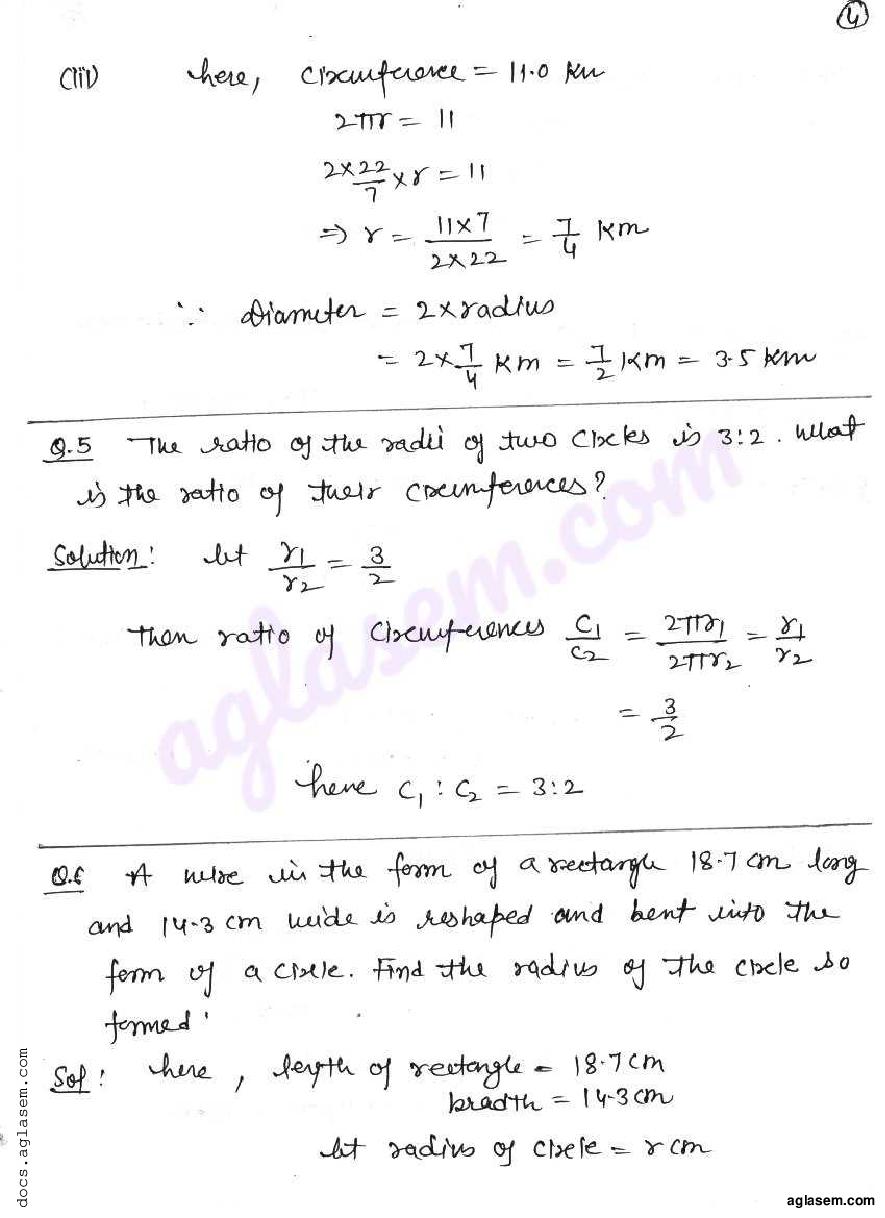 4
(iii) here, circumference = 11.0 Km
2πr = 11
2×22/7 × r = 11
⇒ r = 11×7/2×22 = 7/4 Km
∵ Diameter = 2×radius
= 2×7/4 Km = 7/2 Km = 3.5 Km
Q.5 The ratio of the radii of two circles is 3:2. What
is the ratio of their circumferences?
Solution: let r1/r2 = 3/2
Then ratio of circumferences C1/C2 = 2πr1/2πr2 = r1/r2
= 3/2
hence C1 : C2 = 3:2
Q.6 A wire in the form of a rectangle 18.7 cm long
and 14.3 cm wide is reshaped and bent into the
form of a circle. Find the radius of the circle so
formed.
Sol: here, length of rectangle = 18.7 cm
bradth = 14.3 cm
let radius of circle = r cm
aglasem.com
docs.aglasem.com
aglasem.com